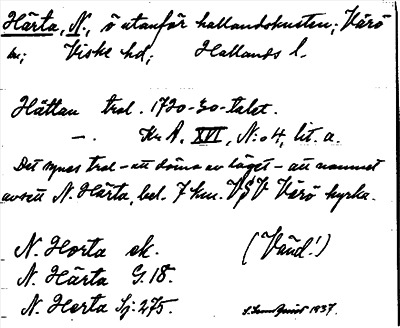 Härta, N., ö utanför hallandskusten; Värö
sn; Viske hd; Hallands l.
Hättan trol. 1720-30-talet.
—. Kr. A. XVI, N:o 4, lit. a.
Det synes trol – att döma av läget – att namnet
avsett N. Härta, bel. 7 km. VSV Värö kyrka.
N. Horta ek. (Vänd!)
N. Härta G. 18.
N. Herta Sj. 275.
1937.